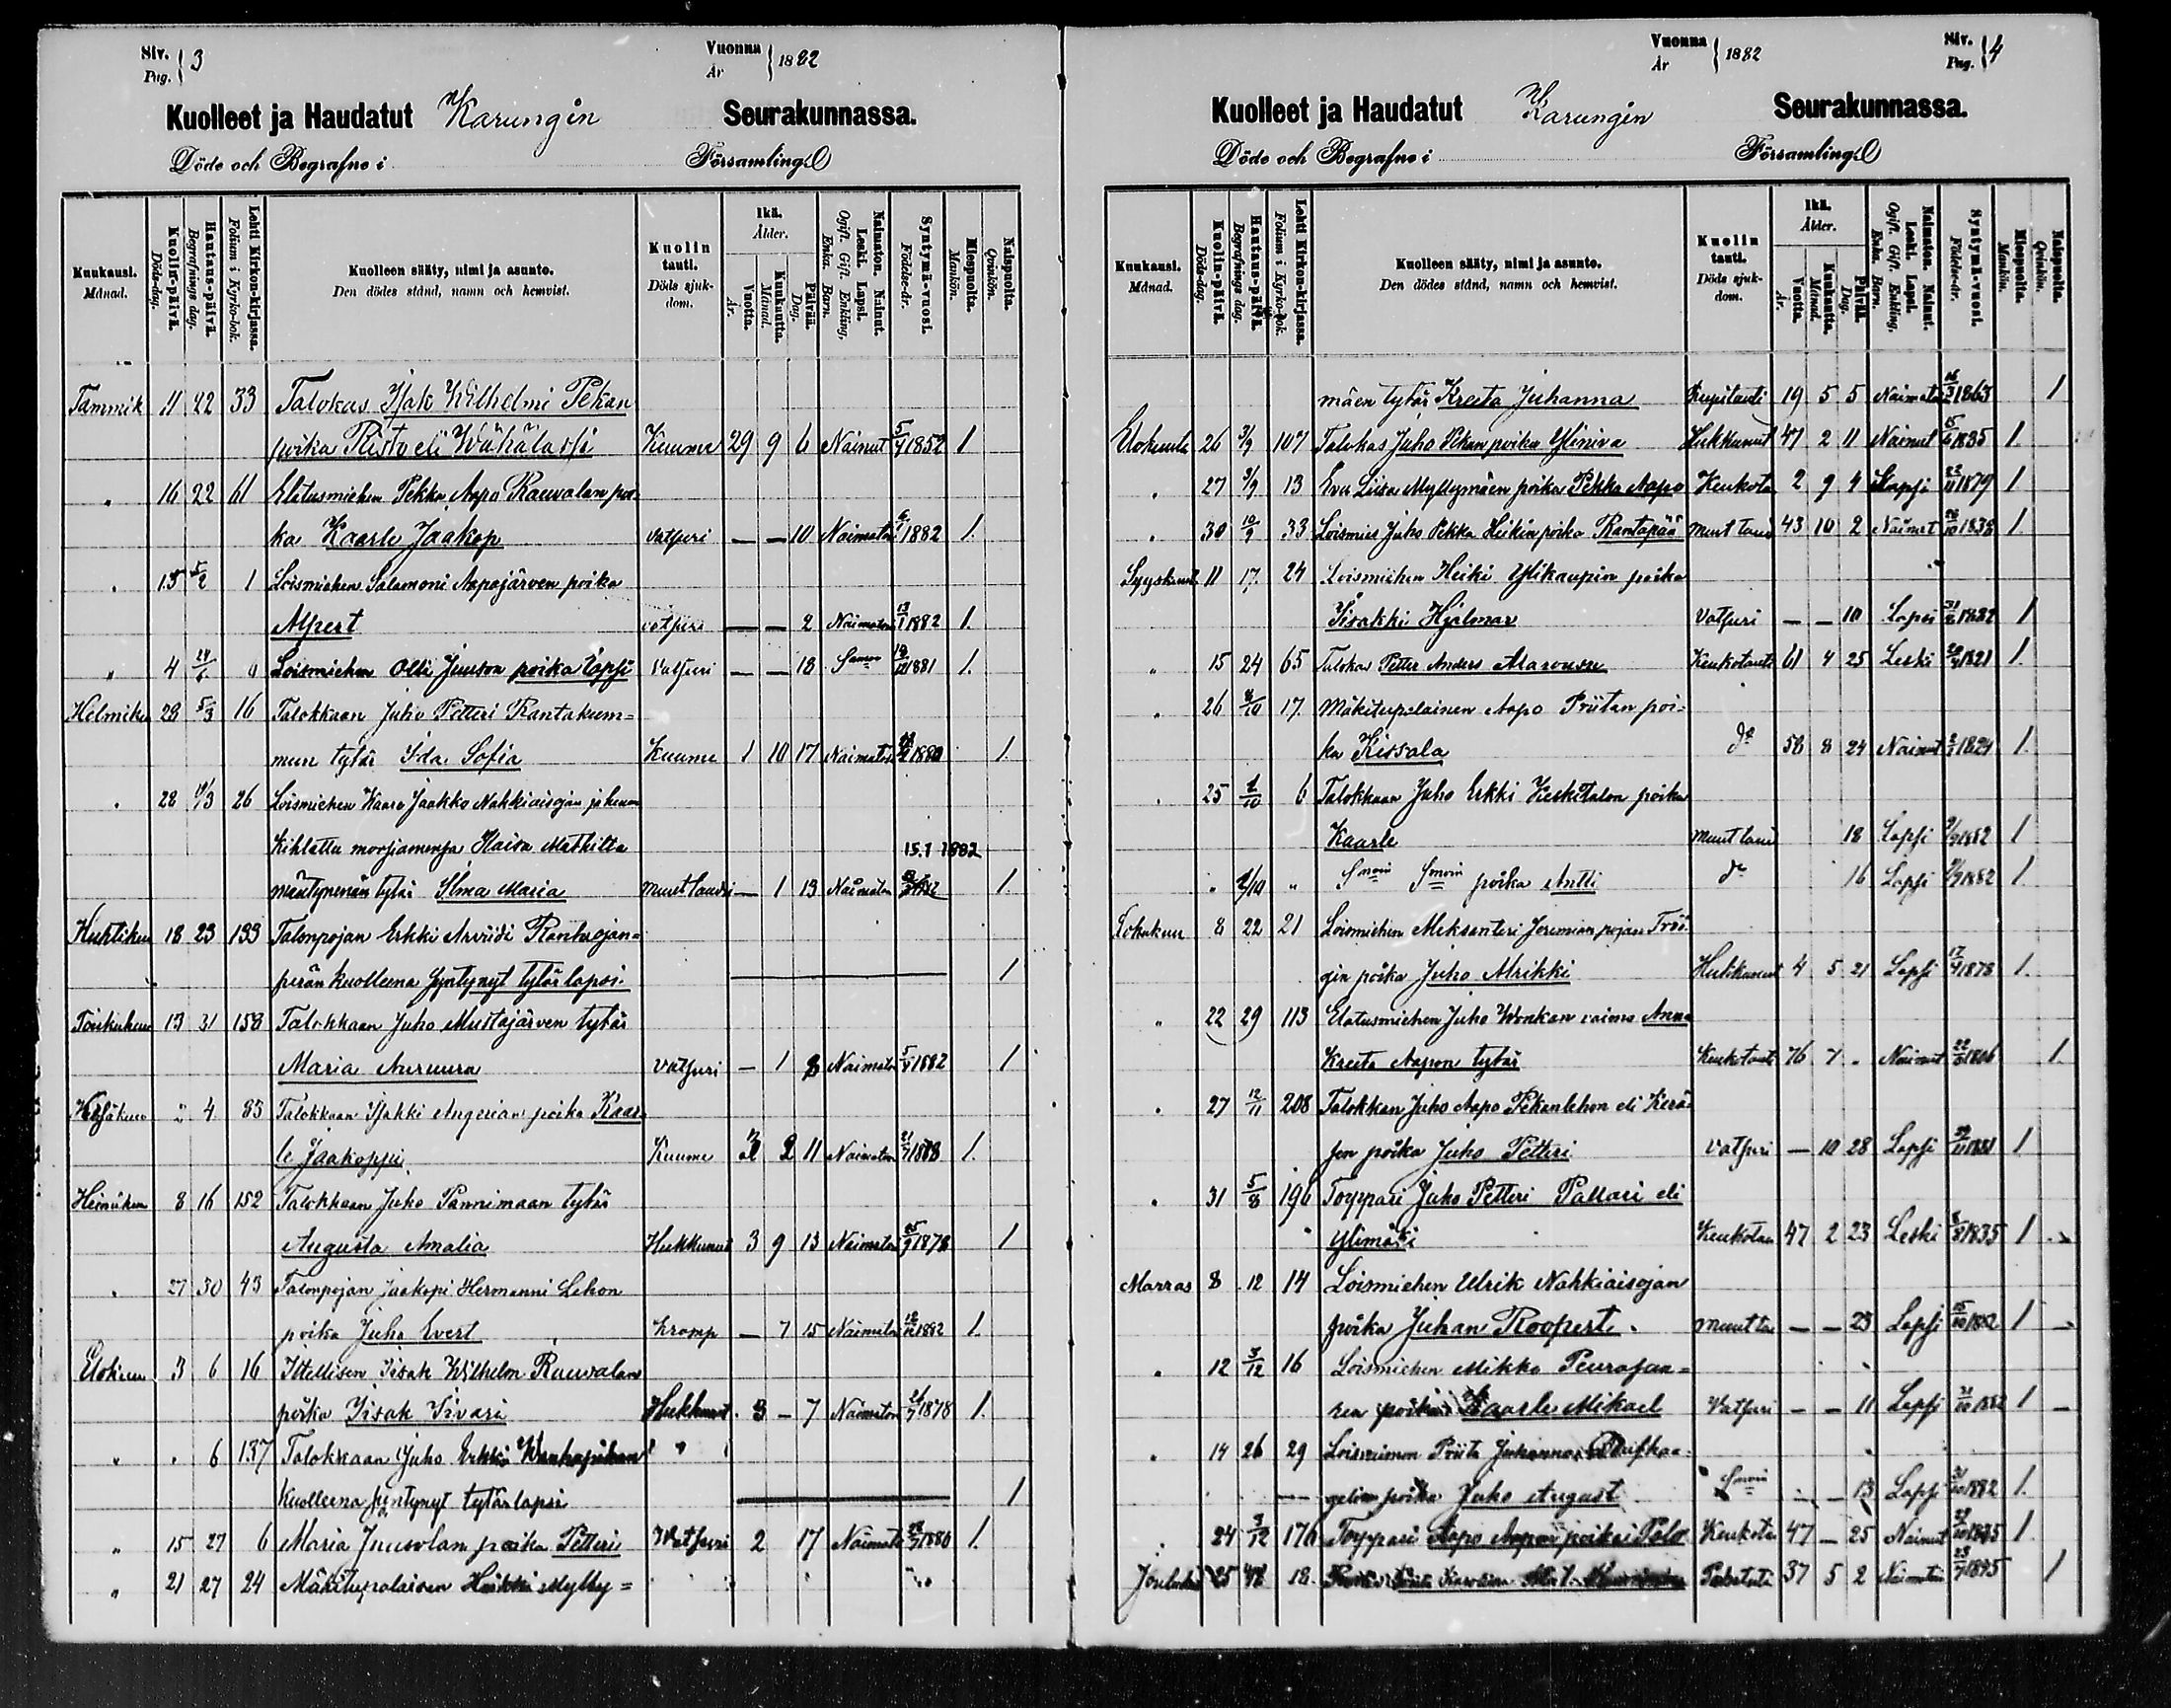 Siv. Pag. 3
Vuonna År 1882
Kuolleet ja Haudatut Karungin Seurakunnassa.
Döde och Begrafne i Församling
Kuukausi. Månad.
Kuolin-päivä. Döds-dag.
Hautaus-päivä. Begrafnings dag.
Lehti Kirkon-kirjassa. Folium i Kyrko-bok.
Kuolleen sääty, nimi ja asunto. Den dödes stånd, namn och hemvist.
Kuolin tauti. Döds sjuk-dom.
Ikä. Ålder.
Vuotta. År.
Kuukautta. Månad.
Päivää. Dag.
Naimaton. Nainut. Leski. Lapsi. Ogift. Gift. Enkling, Enka. Barn.
Syntymä-vuosi. Födelse-år.
Miespuolta. Mankön.
Naispuolta. Qvinkön.
Tammik 11 22 33 Talokas Isak Wilhelmi Pekan
poika Risto eli Wähälassi Kuume 29 9 6 Nainut 5/4 1852 1
" 16 22 61 Elatusmiehen Pekka Aapo Rauvalan poi
ka Kaarle Jaakop vatsuri — — 10 Naimaton 6/1 1882 1.
" 15 5/2 1 Loismiehen Salamoni Aapajärven poika
Alpert vatsuri — — 2 Naimaton 13/1 1882 1.
" 4 Loismiehen Olli Juuson poika lapsi Vatsuri — — 18 1881 1.
Helmiku 28 5/3 16 Talokkaan Juho Petteri Rantakum=
mun tytär Ida Sofia Kuume 1 10 17 Naimaton 1880 1.
" 28 /3 26 Loismiehen Kaare Jaakko Nahkiaisojan
Kihlattu morsiamensa Maria Mathilta 15.1 1882
mäntynenän tytär Ilma Maria muut taudi — 1 13 Naimaton 1.
Huhtikuu 18 23 133 Talonpojan Erkki Arvidi Rantaojan=
perän kuolleena syntynyt tytärlapsi. 1
Toukukuu 13 31 158 Talokkaan Juho Mustajärven tytär
Maria Auruura vatsuri — 1 8 Naimaton 5/4 1882 1
Kesäkuu " 4 85 Talokkaan Isakki Angerian poika Kaar
le Jaakoppi Kuume 2 11 Naimaton 1.
Heinäkuu 8 16 152 Talokkaan Juho Pannimaan tytär
Augusta Amalia Hukkunut 3 9 13 Naimaton 25/9 1878 1
" 27 30 43 Talonpojan Jaakopi Hermanni Lehon
poika Juho Evert Kramp — 7 15 Naimaton 12/12 1882 1.
Elokuu 3 6 16 Itellisen Iisak Wilhelm Rauvalan
poika Iisak Iivari Hukkunut 3 — 7 Naimaton 1878 1.
" " 6 137 Talokkaan Juho Erkki
Kuolleena syntynyt tytärlapsi 1
" 15 27 6 Maria Juusolan poika Petteri Vatsuri 2 17 Naimato 1880 1.
" 21 27 24 Mäkitupalaisen Heikki Mylly=
Siv. Pag. 4
Vuonna År 1882
Kuolleet ja Haudatut Karungin Seurakunnassa.
Döde och Begrafne i Församling
Kuukausi. Månad.
Kuolin-päivä. Döds-dag.
Hautaus-päivä. Begrafnings dag.
Lehti Kirkon-kirjassa. Folium i Kyrko-bok.
Kuolleen sääty, nimi ja asunto. Den dödes stånd, namn och hemvist.
Kuolin tauti. Döds sjuk-dom.
Ikä. Ålder.
Vuotta. År.
Kuukautta. Månad.
Päivää. Dag.
Naimaton. Nainut. Leski. Lapsi. Ogift. Gift. Enkling, Enka. Barn.
Syntymä-vuosi. Födelse-år.
Miespuolta. Mankön.
Naispuolta. Qvinkön.
mäen tytär Kreeta Juhanna 19 5 5 Naimaton 16/3 1863 1
Elokuulu 26 3/9 107 Talokas Juho Pekan poika Yliniva Hukkunut 47 2 11 Nainut 1835 1.
" 27 3/9 13 Eva Liisa Myllymäen poika Pekka Aapo Keukota 2 9 4 Lapsi 23/11 1879 1
" 30 10/9 33 Loismies Juho Pekka Heikin poika Rantapää muut taud 43 10 2 Nainut 28/10 1838 1.
Syyskuu 11 17 24 Loismiehen Heiki Ylikaupin poika
Iisakki Hjalmar Vatsuri — — 10 Lapsi 31/8 1882 1
" 15 24 65 Talokas Petter Anders Keukotauti 61 4 25 Leski 1821 1.
" 26 8/10 17 Mäkitupalainen Aapo Priitan poi-
ka Kissala do 58 8 24 Nainut 1824 1.
" 25 1/10 6 Talokkaan Juho Erkki Keskitalon poika
Kaarle muut taud 18 Lapsi 1882 1
" /10 " poika Antti do 16 Lapsi 1882 1
Lokakuu 8 22 21 Loismiehen Aleksanteri Jeremian pojan
gin poika Juho Alrikki Hukkunut 4 5 21 Lapsi 17/4 1878 1.
" 22 29 113 Elatusmiehen Juho Wonkan vaimo Anna
Kreeta Aapon tytär Keukotaut 76 7 " Nainut 1806 1.
" 27 12/11 208 Talokkan Juho Aapo Pekanlehon eli Kerä-
sen poika Juho Petteri Vatsuri — 10 28 Lapsi 1881 1
" 31 5/8 196 Torppari Juho Petteri Pallari eli
Ylimäki Keukotau 47 2 23 Leski 8/8 1835 1
Marras 8 12 14 Loismiehen Ulrik Nahkiaisojan
poika Juhan Roopert. muut ta — — 23 Lapsi 15/10 1882 1
" 12 3/12 16 Loismiehen Mikko Peurajaa=
ren poika Kaarle Mikael Vatsuri — — 11 Lapsi 31/10 1882 1
" 14 26 29 Loisvaimon Priita Juhanna
poika Juho August — 13 Lapsi 1882 1.
" 24 3/12 176 Torppari Aapo Aapon poika Palo Keukota 47 — 25 Nainut 1835 1.
Jouluku 25 18 37 5 2 Naimaton 1845 1